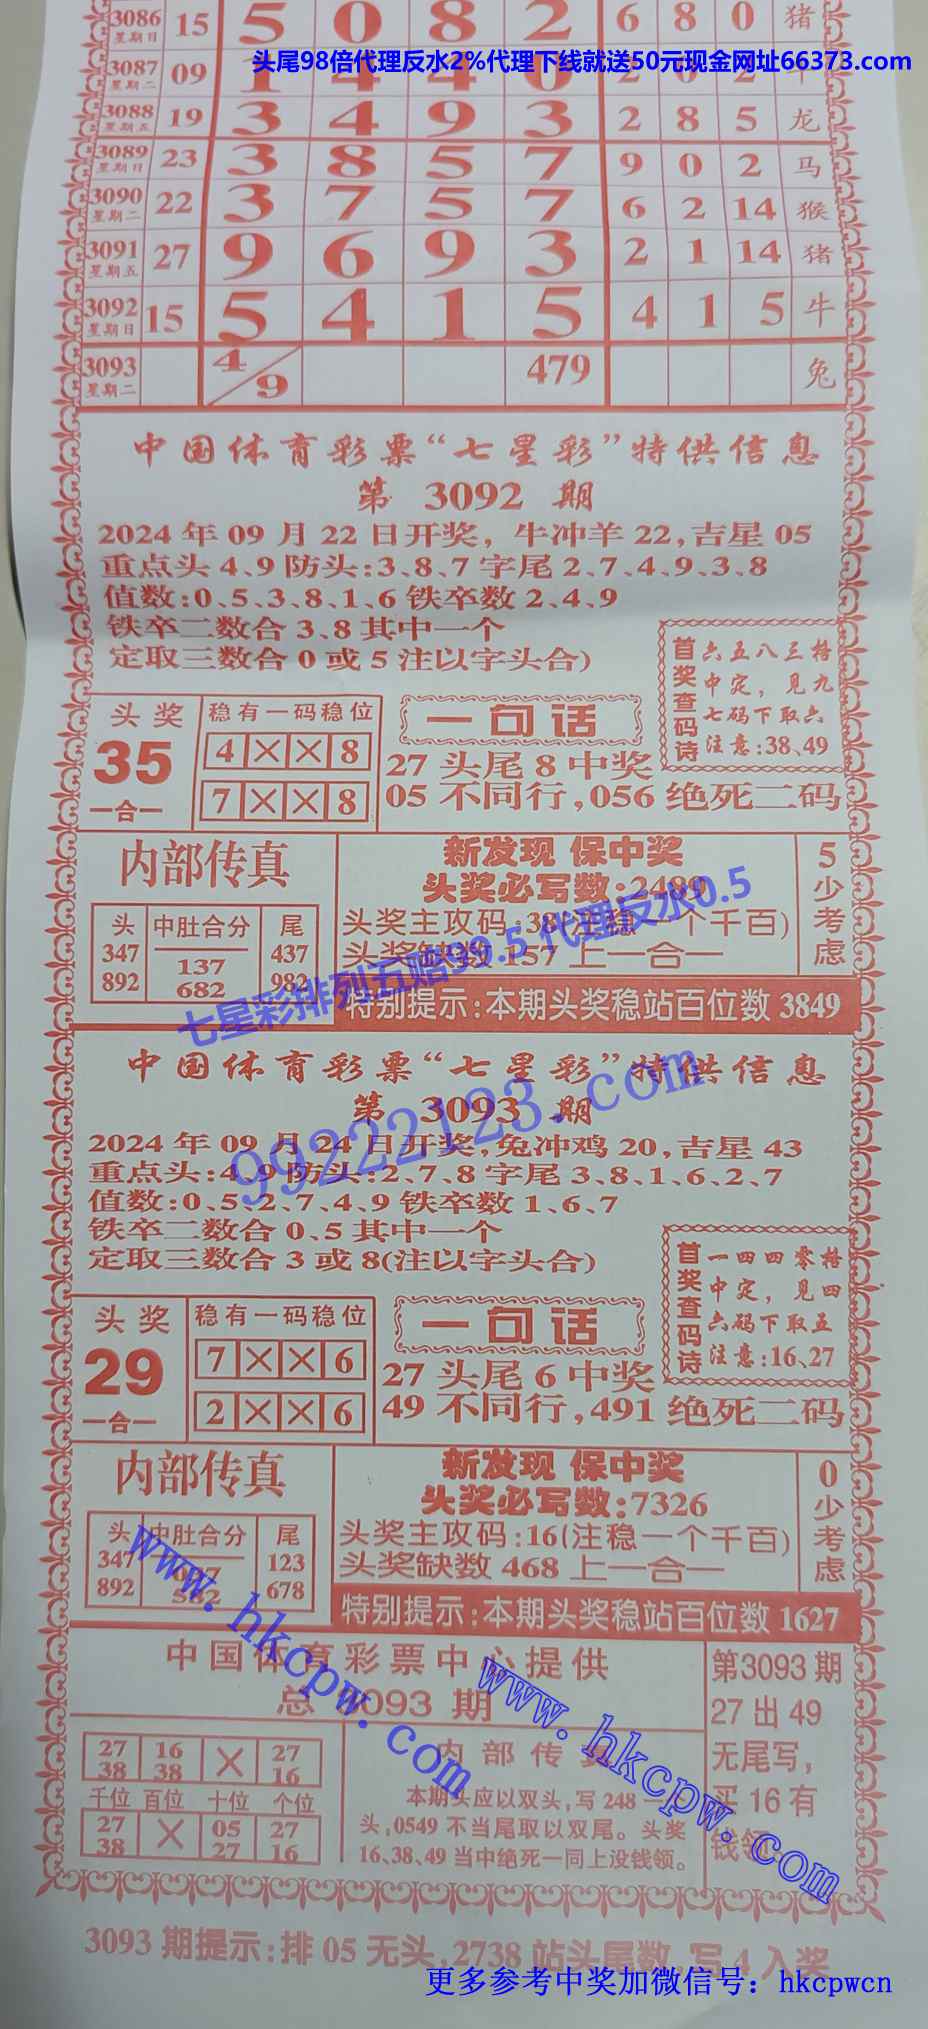 3086 15 5 0 8 2 6 8 0 猪
星期日
头尾98倍代理反水2%代理下线就送50元现金网址66373.com
3087 09 1 4 4 0 2 0 2 牛
星期二
3088 19 3 4 9 3 2 8 5 龙
星期五
3089 23 3 8 5 7 9 0 2 马
星期日
3090 22 3 7 5 7 6 2 14 猴
星期二
3091 27 9 6 9 3 2 1 14 猪
星期五
3092 15 5 4 1 5 4 1 5 牛
星期日
3093 4/9 479 兔
星期二
中国体育彩票“七星彩”特供信息
第 3092 期
2024年09月22日开奖，牛冲羊22,吉星05
重点头4、9防头:3、8、7字尾2、7、4、9、3、8
值数:0、5、3、8、1、6铁卒数2、4、9
铁卒二数合3、8其中一个
定取三数合0或5注以字头合)
首奖查码诗
六五八三特
中定，见九
七码下取六
注意:38、49
头奖
35
一合一
稳有一码稳位
4 X X 8
7 X X 8
一句话
27头尾8中奖
05不同行,056绝死二码
内部传真
头 中肚合分 尾
347 137 437
892 682 982
新发现 保中奖
头奖必写数:2489
头奖主攻码:38(注稳一个千百)
头奖缺数157上一合一
5少考虑
特别提示:本期头奖稳站百位数3849
七星彩排列五赔99.5代理反水0.5
99222123.com
中国体育彩票“七星彩”特供信息
第 3093 期
2024年09月24日开奖,兔冲鸡20,吉星43
重点头:4、9防头:2、7、8字尾3、8、1、6、2、7
值数:0、5、2、7、4、9铁卒数1、6、7
铁卒二数合0、5其中一个
定取三数合3或8(注以字头合)
首奖查码诗
一四四零特
中定，见四
六码下取五
注意:16、27
头奖
29
一合一
稳有一码稳位
7 X X 6
2 X X 6
一句话
27头尾6中奖
49不同行,491绝死二码
内部传真
头 中肚合分 尾
347 123
892 582 678
新发现 保中奖
头奖必写数:7326
头奖主攻码:16(注稳一个千百)
头奖缺数468上一合一
0少考虑
特别提示:本期头奖稳站百位数1627
www.hkcpw.com
www.hkcpw.com
中国体育彩票中心提供
总 3093 期
第3093期
27出49
无尾写,
买16有
钱领
27 16 X 27
38 38 16
千位 百位 十位 个位
27 X 05 27
38 27 16
内部传真
本期头应以双头,写248一
头,0549不当尾取以双尾。头奖
16、38、49当中绝死一同上没钱领。
3093期提示:排05无头,2738站头尾数,写4入奖
更多参考中奖加微信号：hkcpwcn